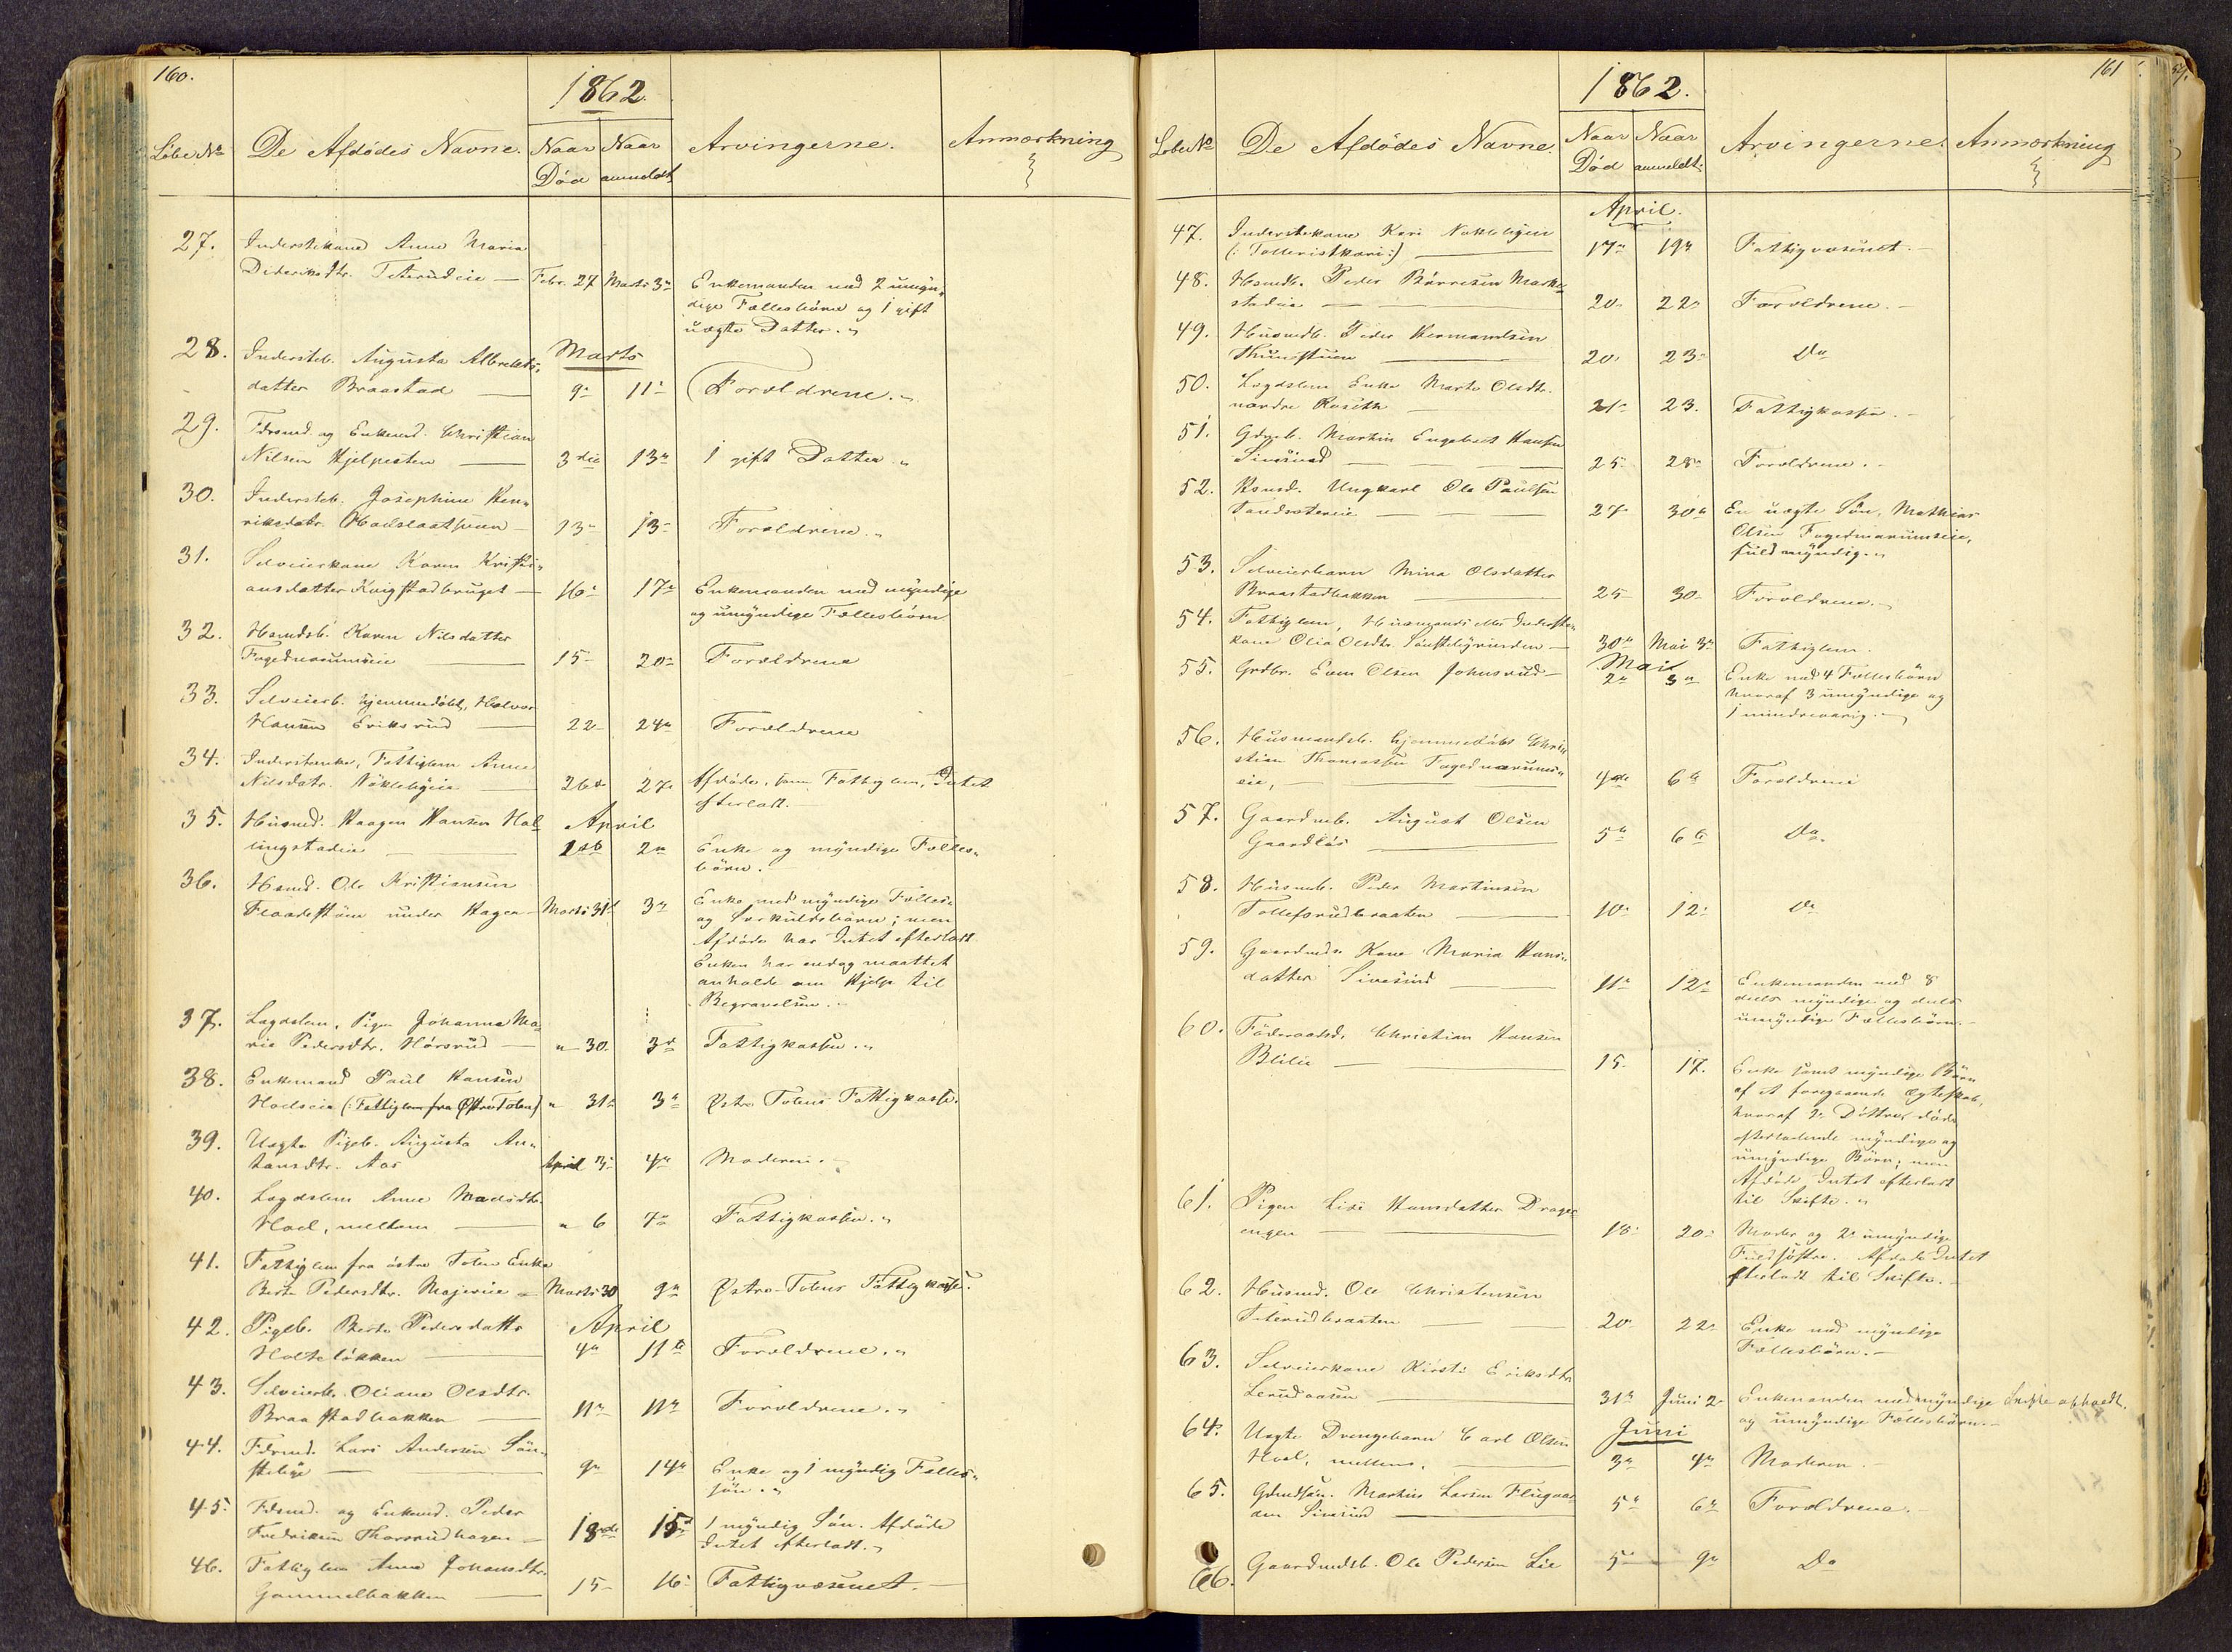 160.
1862.
Löbe No De Afdödes Navne. Naar Død Naar anmeldt Arvingerne. Anmærkning
27. Inderstekone Anne Maria
Dideriksdtr. Teterudeie — Febr. 27 Marts 3 Enkemanden med 2 umyn-
dige Fællesbörn og 1 gift
uægte Datter.
28. Indersteb. Augusta Albrekts- Marts
datter Braastad — 9 11 Forældrene.
29. Fdrmd. og Enkemd. Christian
Nilsen Hjelpesten — 3die 13 1 gift Datter
30. Indersteb. Josephine Hen-
riksdatr. — 13 13 Forældrene.
31. Selveierkone Karen Kristi-
ansdatter Kvigstadbruget — 16 17 Enkemanden med myndige
og umyndige Fællesbörn
32. Hsmdsb. Karen Nilsdatter
— 15 20 Forældrene
33. Selveierb. hjemmedöbt, Halvor
Hansen Eriksrud — 22 24 Forældrene
34. Inderstenke, Fattiglem Anne
Nilsdatr. Nöklebyeie — 26 27 Afdöde, som Fattiglem, Intet
efterladt.
35. Huusmd. Haagen Hansen Hal- April
lingstadeie — 1ste 2 Enke og myndige Fælles-
börn.
36. Hsmd. Ole Kristiansen
under Hagen — Marts 31 3 Enke med myndige Fælles-
og Særkuldsbörn; men
Afdöde har Intet efterladt
Enken har endog maattet
anholde om Hjelp til
Begravelsen.
37. Lægdslem, Pigen Johanne Ma-
rie Pedersdtr. Hörsrud — " 30 3 Fattigkassen.
38. Enkemand Paul Hansen
Hoelseie (: Fattiglem fra Østre Toten) " 31 3 Østre Totens Fattigkasse.
39. Uægte Pigeb. Augusta An-
tonsdtr. Aas April 3 4 Moderen.
40. Lægdslem Anne Madsdtr.
Hoel, mellem — " 6 7 Fattigkassen.
41. Fattiglem fra östre Toten Enke
Berte Pedersdtr. Majereie — Marts 30 9 Østre-Totens Fattigkasse.
42. Pigeb. Berte Pedersdatter April
Holteløkken — 4 11 Forældrene.
43. Selveierb. Oliane Olsdtr.
Braastadbakken — 11 11 Forældrene.
44. Fdrmd. Lars Andersen Sön-
steby — 9 14 Enke og 1 myndig Fælles-
sön.
45. Fdrmd. og Enkemd. Peder
Fredriksen Thorsrudhagen — 13de 15 1 myndig Sön. Afdöde
Intet efterladt.
46. Fattiglem Anne Johansdtr.
Gammelbakken — 15 16 Fattigvæsenet.
161
1862.
Löbe No De Afdödes Navne. Naar Død Naar anmeldt. Arvingerne. Anmærkning
April.
47. Inderstekone Kari Nøklebyeie
(: Tollevistkari :) — 17 19 Fattigvæsenet.
48. Hsmdb. Peder Börresen Marke-
stadeie — 20 22 Forældrene.
49. Huusmdb. Peder Hermansen
Thunstuen — 20 23 Do
50. Lægdslem Enke Marte Olsdtr.
nordre Roseth — 21 23. Fattigkassen.
51. Gdmb. Martin Engebret Hansen
Sivesind — 25 28 Forældrene.
52. Hsmd. Ungkarl Ole Paulsen
— 27 30 En uægte Sön, Mathias
Olsen
fuldmyndig.
53. Selveierbarn Mina Olsdatter
Braastadbakken — 25 30 Forældrene.
54. Fattiglem, Huusmands eller Inderste-
kone Olia Olsdtr. — 30 Mai 3 Fattiglem.
55. Grdbr. Even Olsen Johnsrud — Mai 2 3 Enke med 4 Fællesbörn
hvoraf 3 umyndige og
1 mindreaarig.
56. Huusmandsb. hjemmedöbt Chri-
stian Thomassen
eie, — 4de 6 Forældrene
57. Gaardmb. August Olsen
Gaardlös — 5 6 Do.
58. Huusmb. Peder Martinsen
Tollefsrudbraaten — 10 12 Do
59. Gaardmds. Kone Maria Hans-
datter Sivesind — 11 12 Enkemanden med 8
dels myndige og dels
umyndige Fællesbörn.
60. Föderaadsd. Christian Hansen
Blilie — 15. 17. Enke samt myndige Börn
af et foregaaende Ægteskab,
hvoraf 2 Döttre döde
efterladende myndige og
umyndige Börn; men
Afdöde Intet efterladt
til Skifte.
61. Pigen Lise Hansdatter Drager-
engen — 18 20 Moder og 2 umyndige
Fuldsöstre. Afdöde Intet
efterladt til Skifte.
62. Huusmd. Ole Christensen
Seterudbraaten — 20 22 Enke med myndige
Fællesbörn.
63. Selveierkone Kirsti Eriksdtr.
Lerudaasen — 31 Juni 2 Enkemanden med myndige Skifte afholdt.
og umyndige Fællesbörn.
64. Uægte Drengebarn Carl Olsen Juni
Hoel, mellem. — 3 4 Moderen.
65. Gdmdsön. Martin Larsen
Sivesind — 5 6 Forældrene.
66. Gaardmdsb. Ole Pedersen Lie 5 9 Do